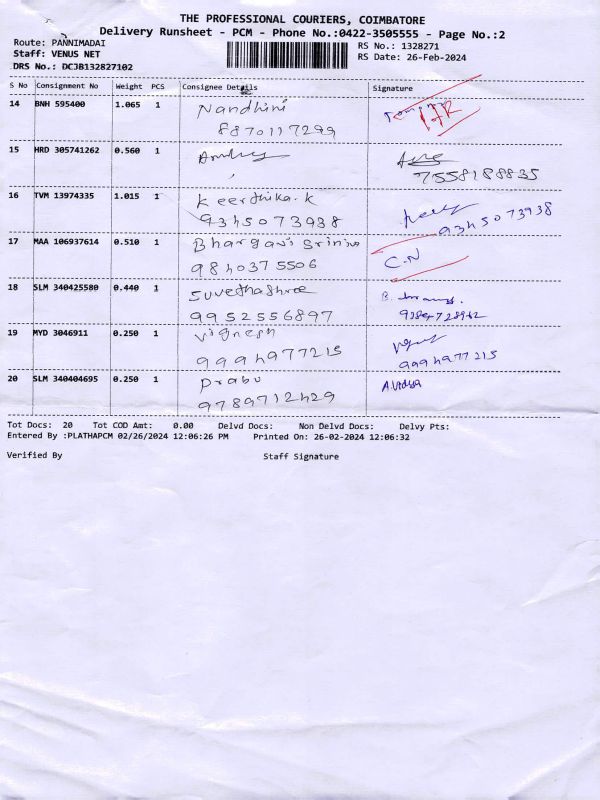 THE PROFESSIONAL COURIERS, COIMBATORE
Delivery Runsheet - PCM - Phone No.:0422-3505555 - Page No.:2
Route: PANNIMADAI
RS No.: 1328271
Staff: VENUS NET
RS Date: 26-Feb-2024
DRS No.: DCJB132827102
S No Consignment No Weight PCS Consignee Details Signature
14 BNH 595400 1.065 1 Nandhini
8870117299
15 HRD 305741262 0.560 1
7558188835
16 TVM 13974335 1.015 1 Keerthika.K
9345073938 9345073938
17 MAA 106937614 0.510 1 Bhargavi Sriniva
9840375506 C.N
18 SLM 340425580 0.440 1 Suvethashree
9952556897
19 MYD 3046911 0.250 1 Vignesh
9994977215 9994977215
20 SLM 340404695 0.250 1 Prabu
9789712429
Tot Docs: 20 Tot COD Amt: 0.00 Delvd Docs: Non Delvd Docs: Delvy Pts:
Entered By :PLATHAPCM 02/26/2024 12:06:26 PM Printed On: 26-02-2024 12:06:32
Verified By Staff Signature